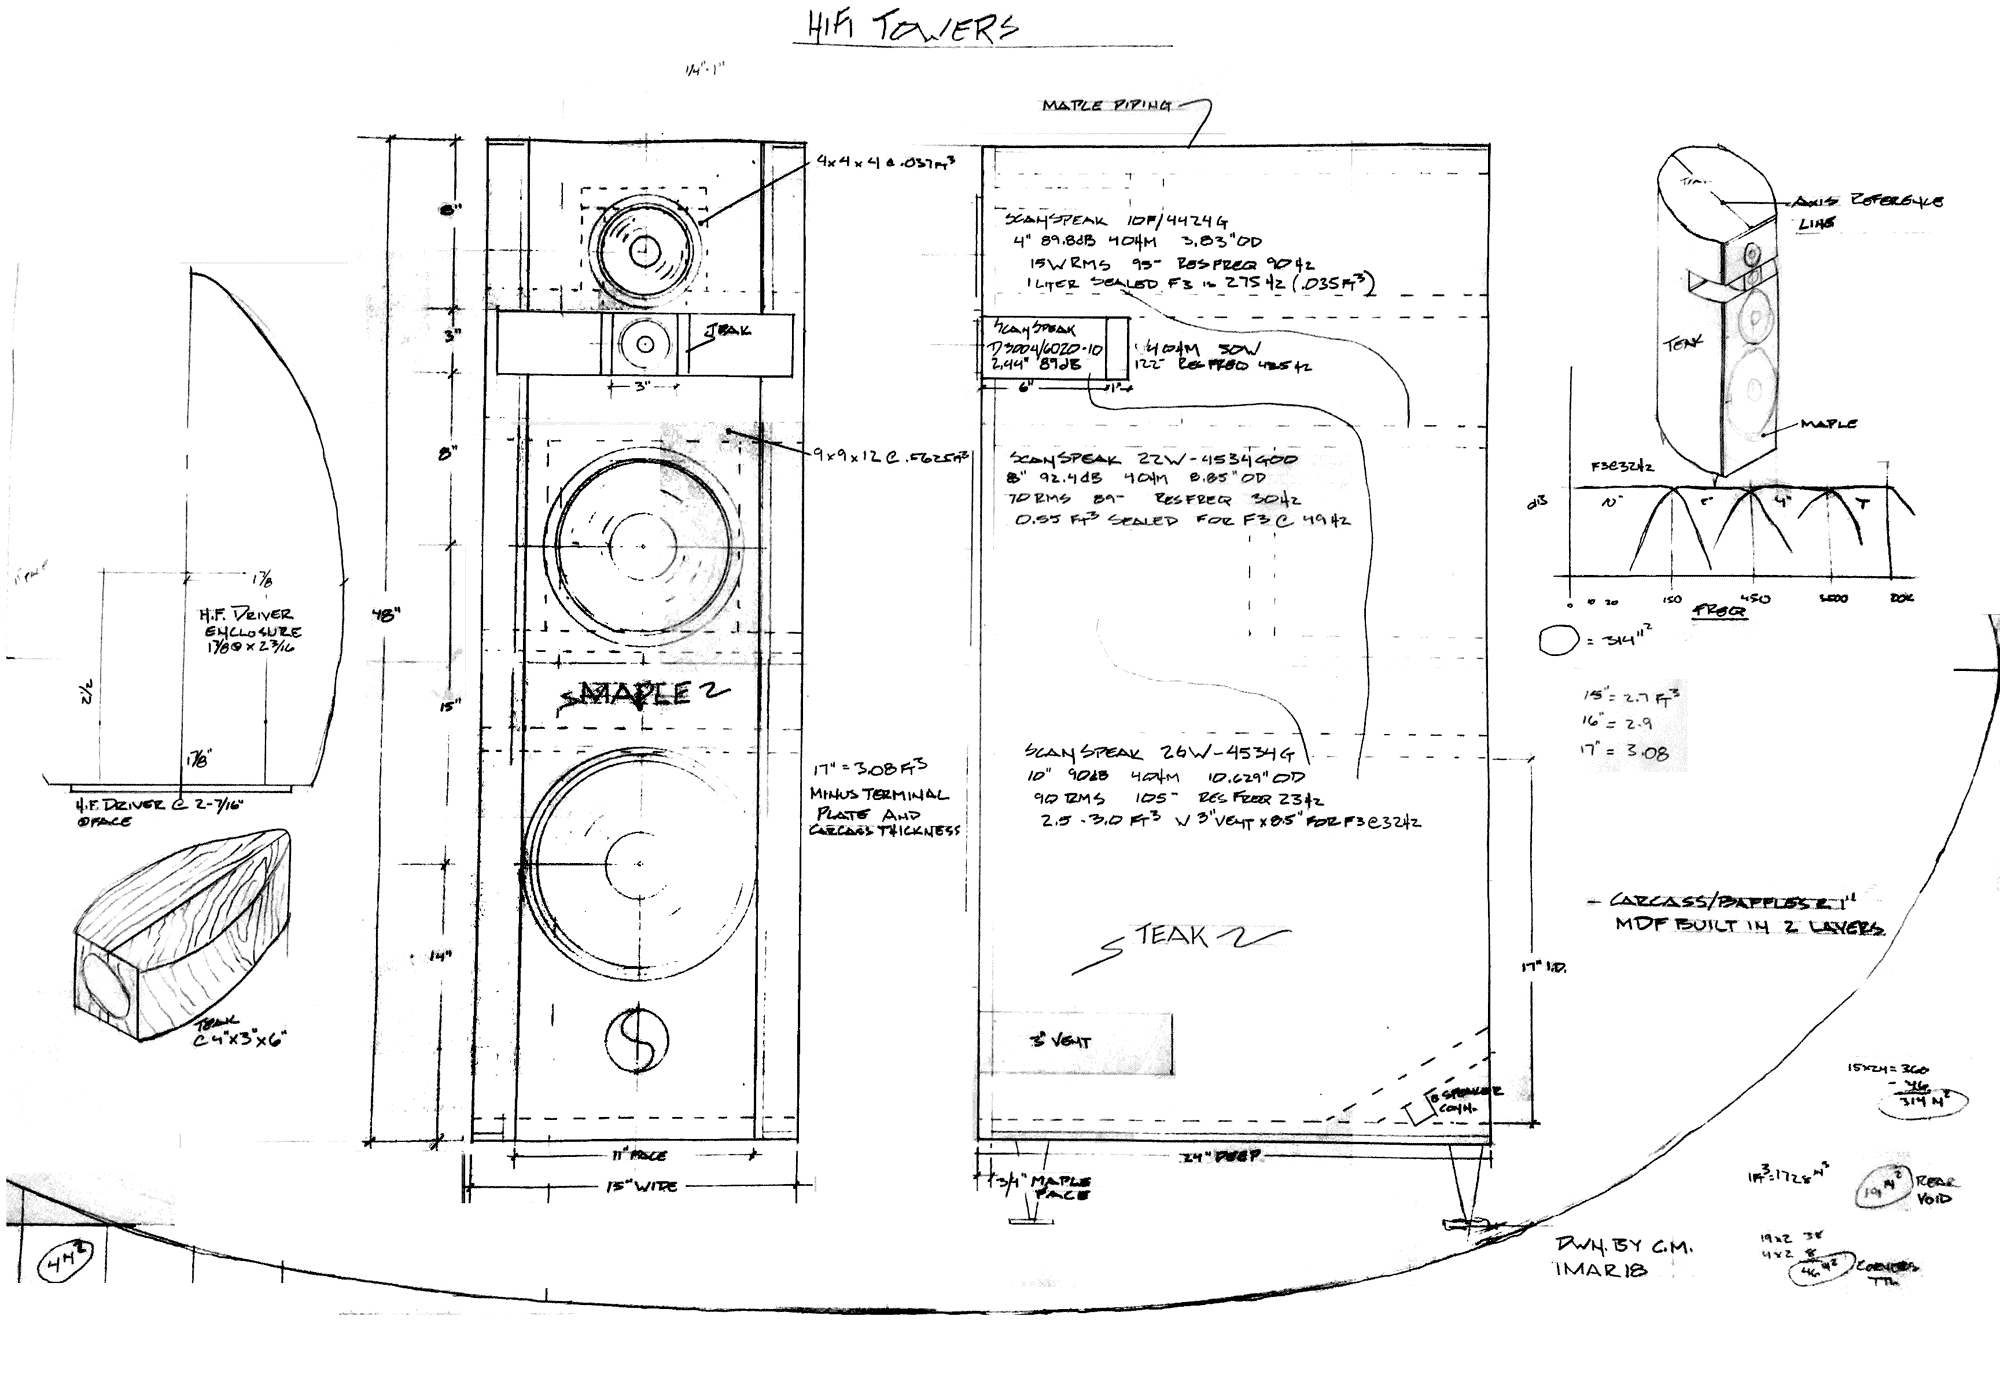 HIFI TOWERS
1/4"-1"
MAPLE PIPING
4x4x4 @ .037FT³
8"
3"
8"
15"
14"
48"
TEAK
3"
9x9x12 @ .5625FT³
MAPLE
17" = 3.08 FT³
MINUS TERMINAL
PLATE AND
CARCASS THICKNESS
11" FACE
15" WIDE
SCANSPEAK 10F/4424G
4" 89.8dB 4OHM 3.83"OD
15W RMS 95- RES FREQ 90HZ
1 LITER SEALED F3 is 275HZ (.035FT³)
SCANSPEAK
D3004/6020-10
2.44" 87dB
4OHM 50W
122- RES FREQ 425HZ
6"
1"
SCANSPEAK 22W-4534G00
8" 92.4dB 4OHM 8.85"OD
70 RMS 89- RES FREQ 30HZ
0.55 FT³ SEALED FOR F3 @ 49HZ
SCANSPEAK 26W-4534G
10" 90dB 4OHM 10.629"OD
90 RMS 105- RES FREQ 23HZ
2.5-3.0 FT³ W 3"VENT x 8.5" FOR F3@32HZ
TEAK
3" VENT
SPEAKER
CONN.
17" I.D.
24" DEEP
3/4" MAPLE
FACE
1 7/8
H.F. DRIVER
ENCLOSURE
1 7/8 Ø x 2 3/16
2 1/2
1 7/8"
H.F. DRIVER @ 2-7/16"
Ø FACE
TEAK
@ 4"x3"x6"
4 IN²
AXIS REFERENCE
LINE
TEAK
MAPLE
F3@32HZ
dB
10"
8"
4"
T
0 10 20 150 450 3500 20K
FREQ
= 314"²
15" = 2.7 FT³
16" = 2.9
17" = 3.08
- CARCASS/BAFFLES @ 1"
MDF BUILT IN 2 LAYERS
15x24 = 360
- 46
314 IN²
1FT³=1728 IN³
19 IN²
REAR
VOID
19x2 38
4x2 8
46 IN²
CORNERS
TTL
DWN. BY C.M.
1 MAR 18